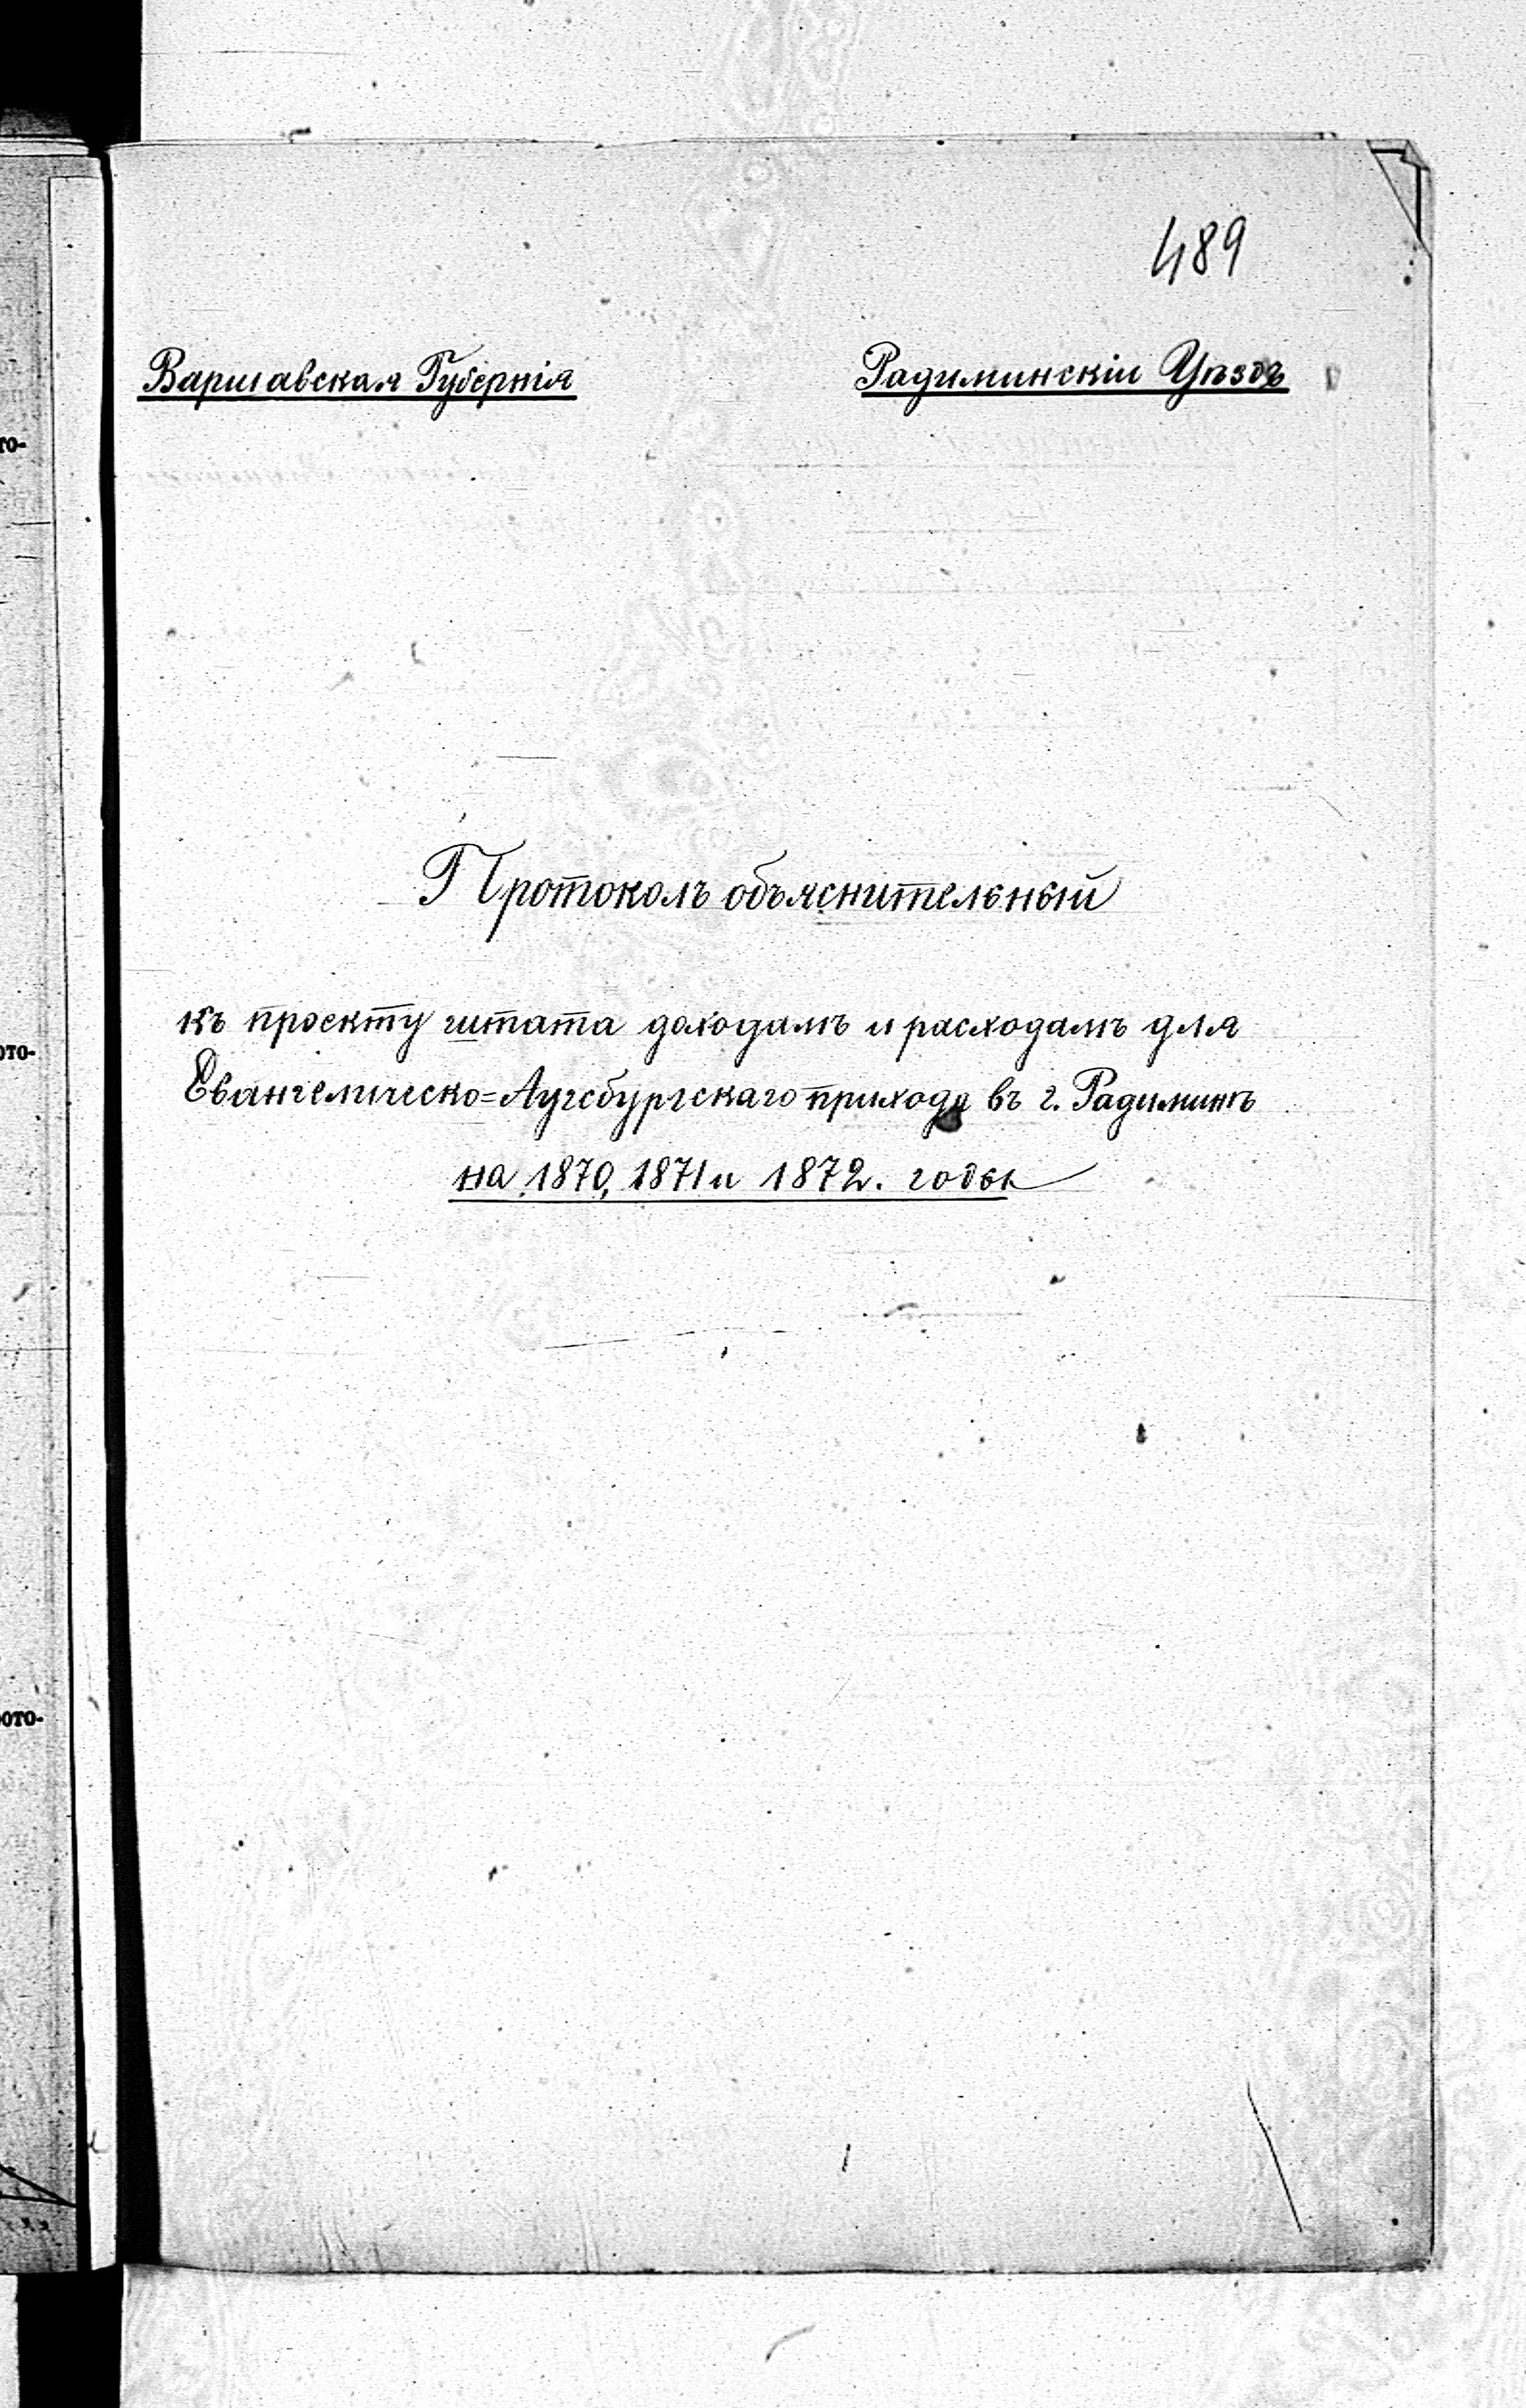 489
Варшавская Губернія
Радиминскій Уѣздъ
Протоколъ объяснительный
къ проекту штата доходамъ и расходамъ для
Евангелическо=Аугсбургскаго прихода въ г. Радиминѣ
на 1870, 1871 и 1872. годы
то-
ото-
ото-